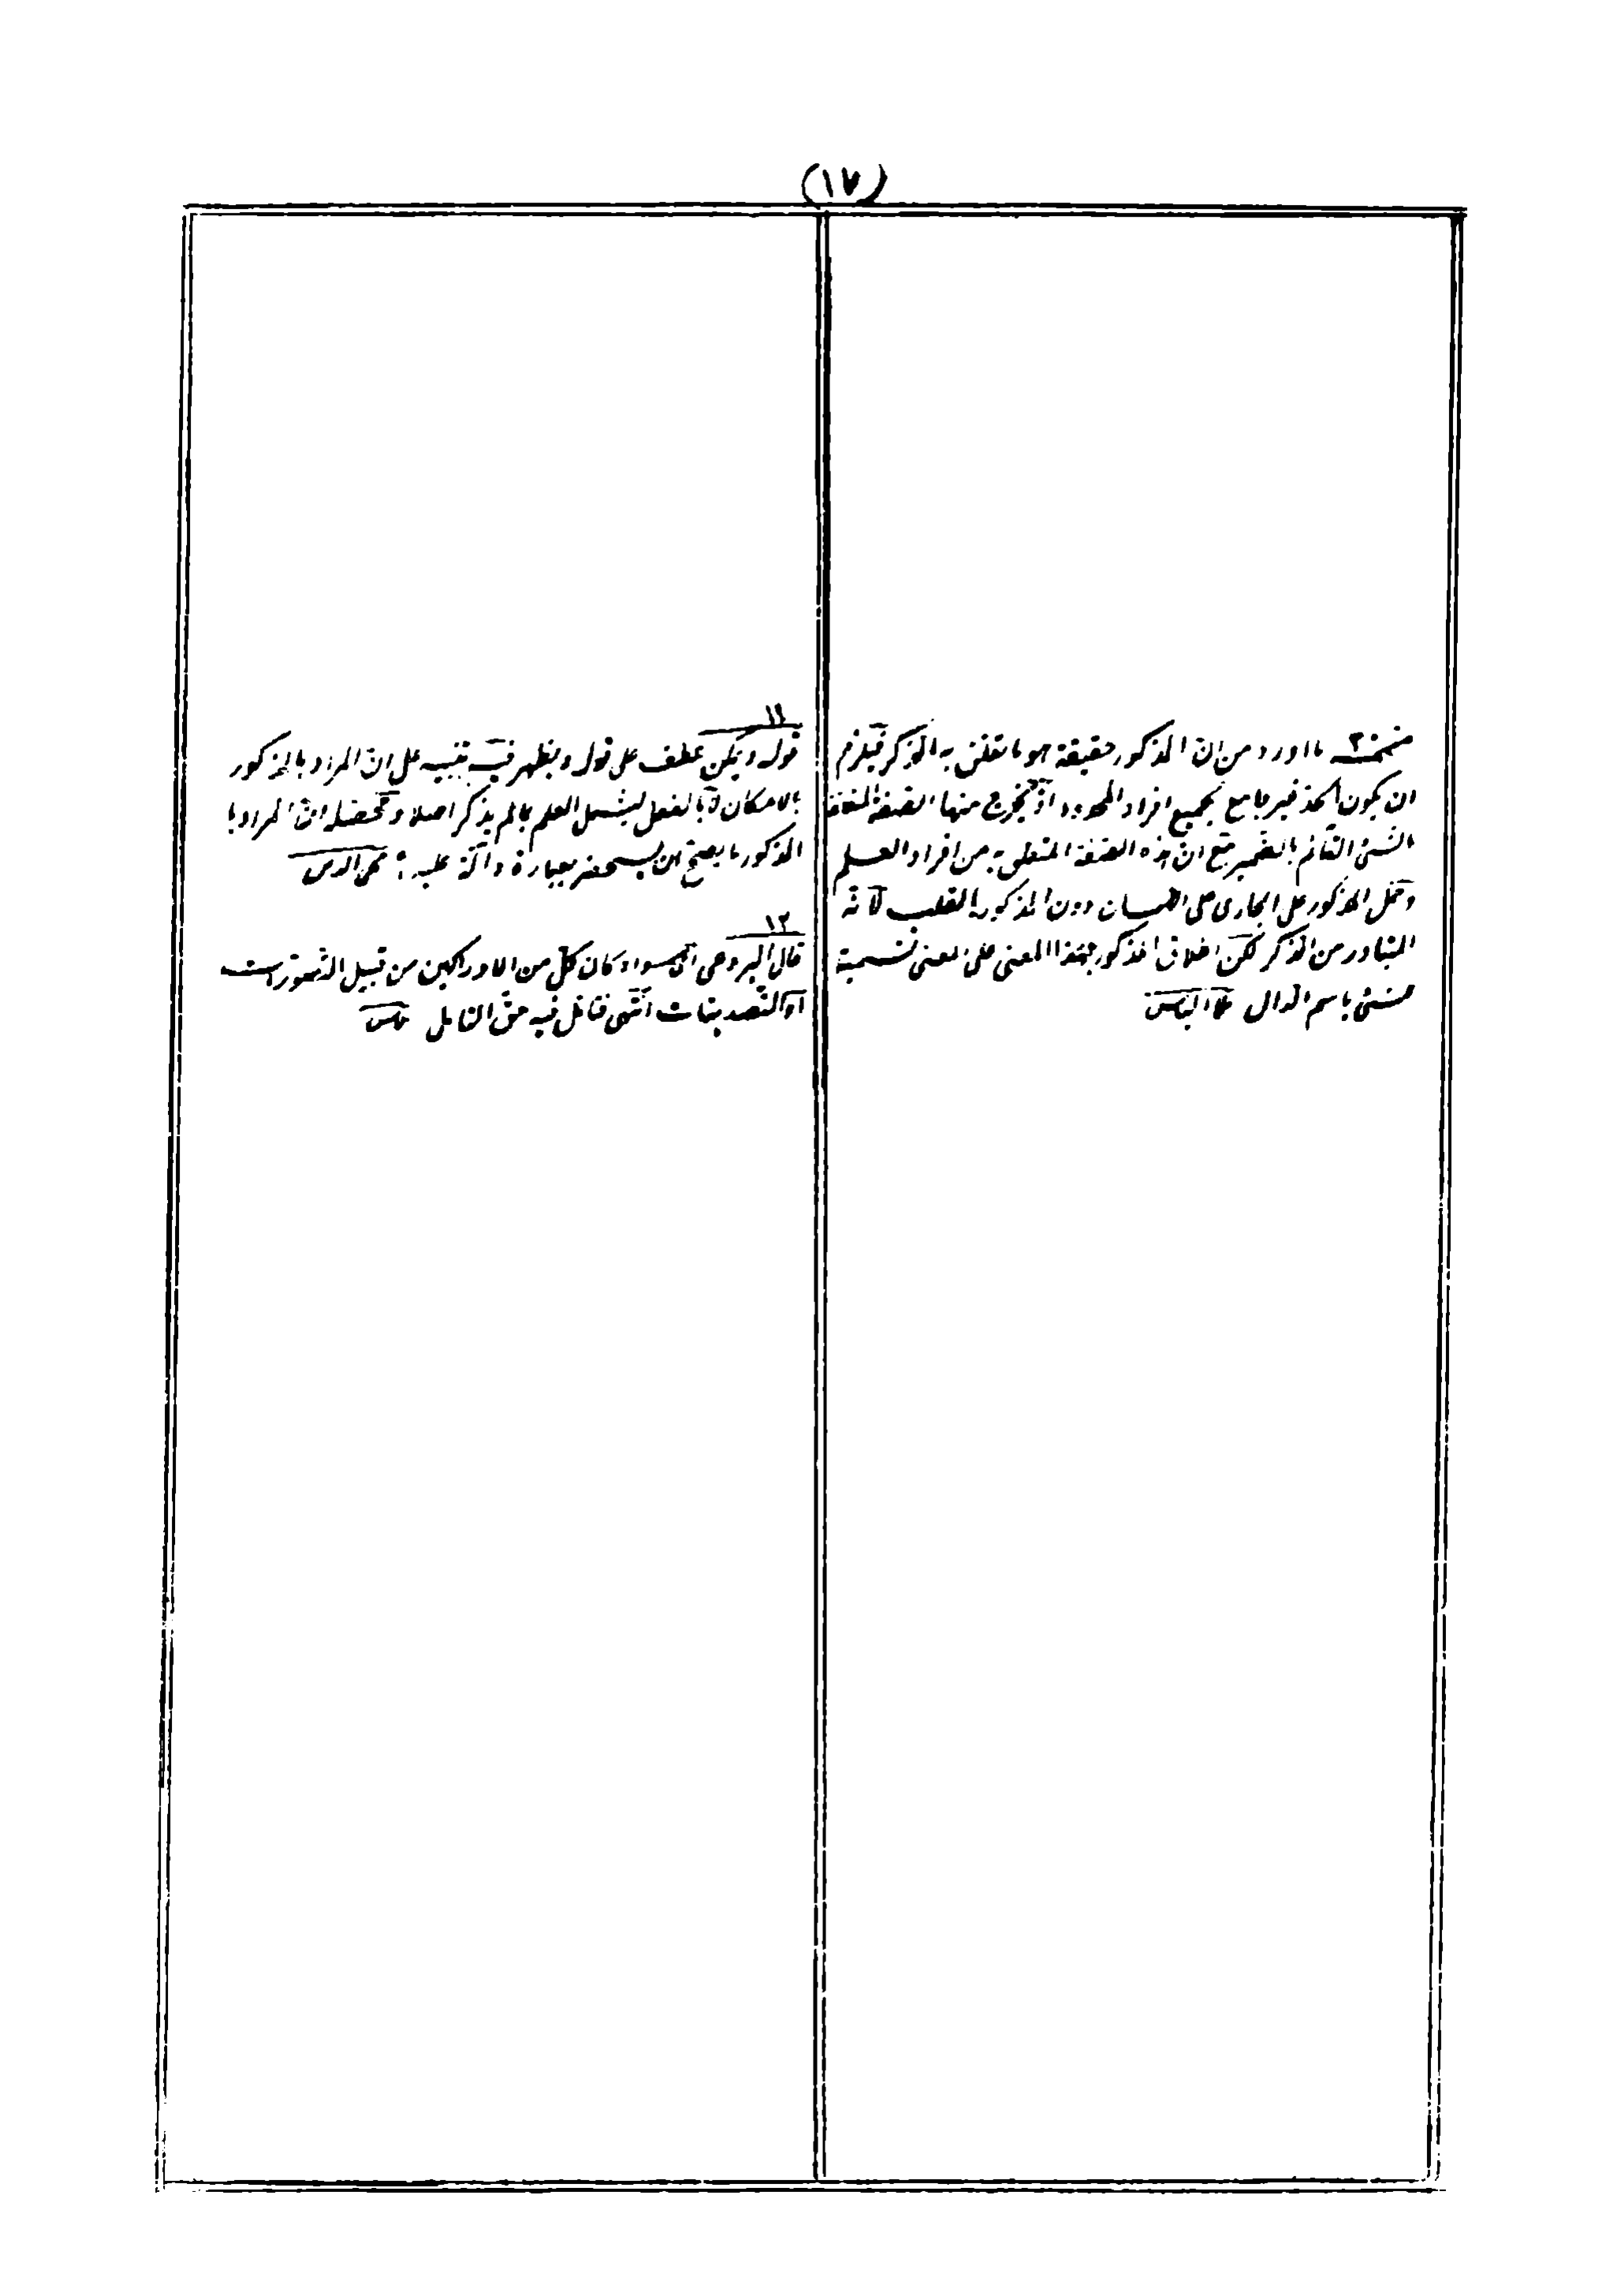 (١٧)
ما اورد من ان المذكور حقيقة هو ما تعلق به الذكر فيلزم
ان يكون الحد غير جامع لجميع افراد المحدود اذ يخرج منها الصفة المتعلقة
بالشئ القائم بالضمير مع ان هذه الصفة المتعلق به من افراد العلم
وحمل المذكور على الجارى على اللسان دون المذكور بالقلب لانه
المتبادر من الذكر لكن اطلاق المذكور بهذا المعنى على المعنى تسمية
باسم الدال
١١
قوله ويمكن عطف على قوله ويظهر فيه تنبيه على ان المراد بالمذكور
بالامكان لا بالفعل ليشمل العلم بما لم يذكر اصلا ومحصله ان المراد با
المذكور ما يصح ان يستحضر بعبارة دالة عليه محى الدين
١٢
قال البيروحى اى سواء كان كل من الادراكين من قبيل التصورات
او التصديقات انتهى فتأمل فيه حق التامل